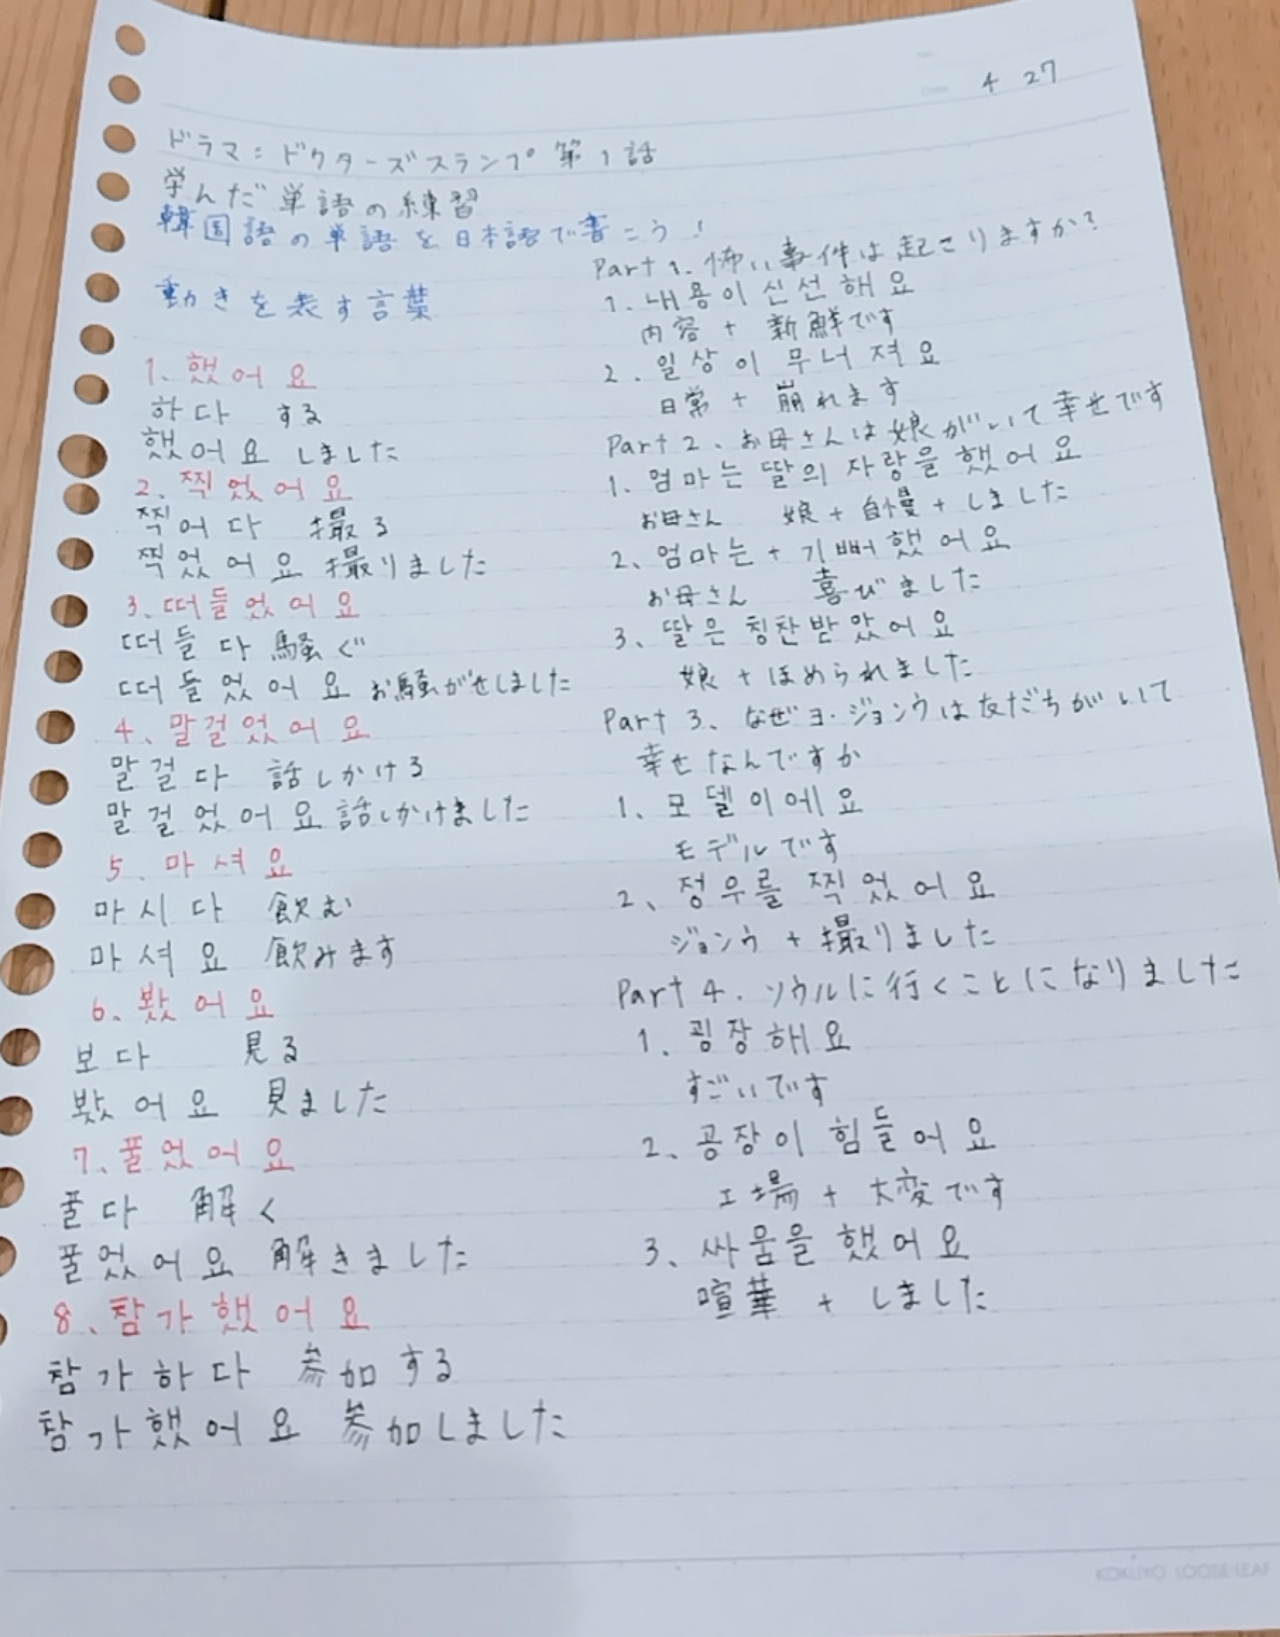 4 27
ドラマ:ドクタースランプ 第1話
学んだ単語の練習
韓国語の単語を日本語で書こう!
動きを表す言葉
1. 했어요
하다 する
했어요 しました
2. 찍었어요
찍어다 撮る
찍었어요 撮りました
3. 떠들었어요
떠들다 騒ぐ
떠들었어요 お騒がせしました
4. 말걸었어요
말걸다 話しかける
말걸었어요 話しかけました
5. 마셔요
마시다 飲む
마셔요 飲みます
6. 봤어요
보다 見る
봤어요 見ました
7. 풀었어요
풀다 解く
풀었어요 解きました
8. 참가했어요
참가하다 参加する
참가했어요 参加しました
Part 1. 怖い事件は起こりますか?
1. 내용이 신선해요
内容 + 新鮮です
2. 일상이 무너져요
日常 + 崩れます
Part 2. お母さんは娘がいて幸せです
1. 엄마는 딸의 자랑을 했어요
お母さん 娘 + 自慢 + しました
2. 엄마는 + 기뻐했어요
お母さん 喜びました
3. 딸은 칭찬받았어요
娘 + ほめられました
Part 3. なぜヨ・ジョンウは友だちがいて
幸せなんですか
1. 모델이에요
モデルです
2. 정우를 찍었어요
ジョンウ + 撮りました
Part 4. ソウルに行くことになりました
1. 굉장해요
すごいです
2. 공장이 힘들어요
工場 + 大変です
3. 싸움을 했어요
喧華 + しました
KOKUYO LOOSE-LEAF